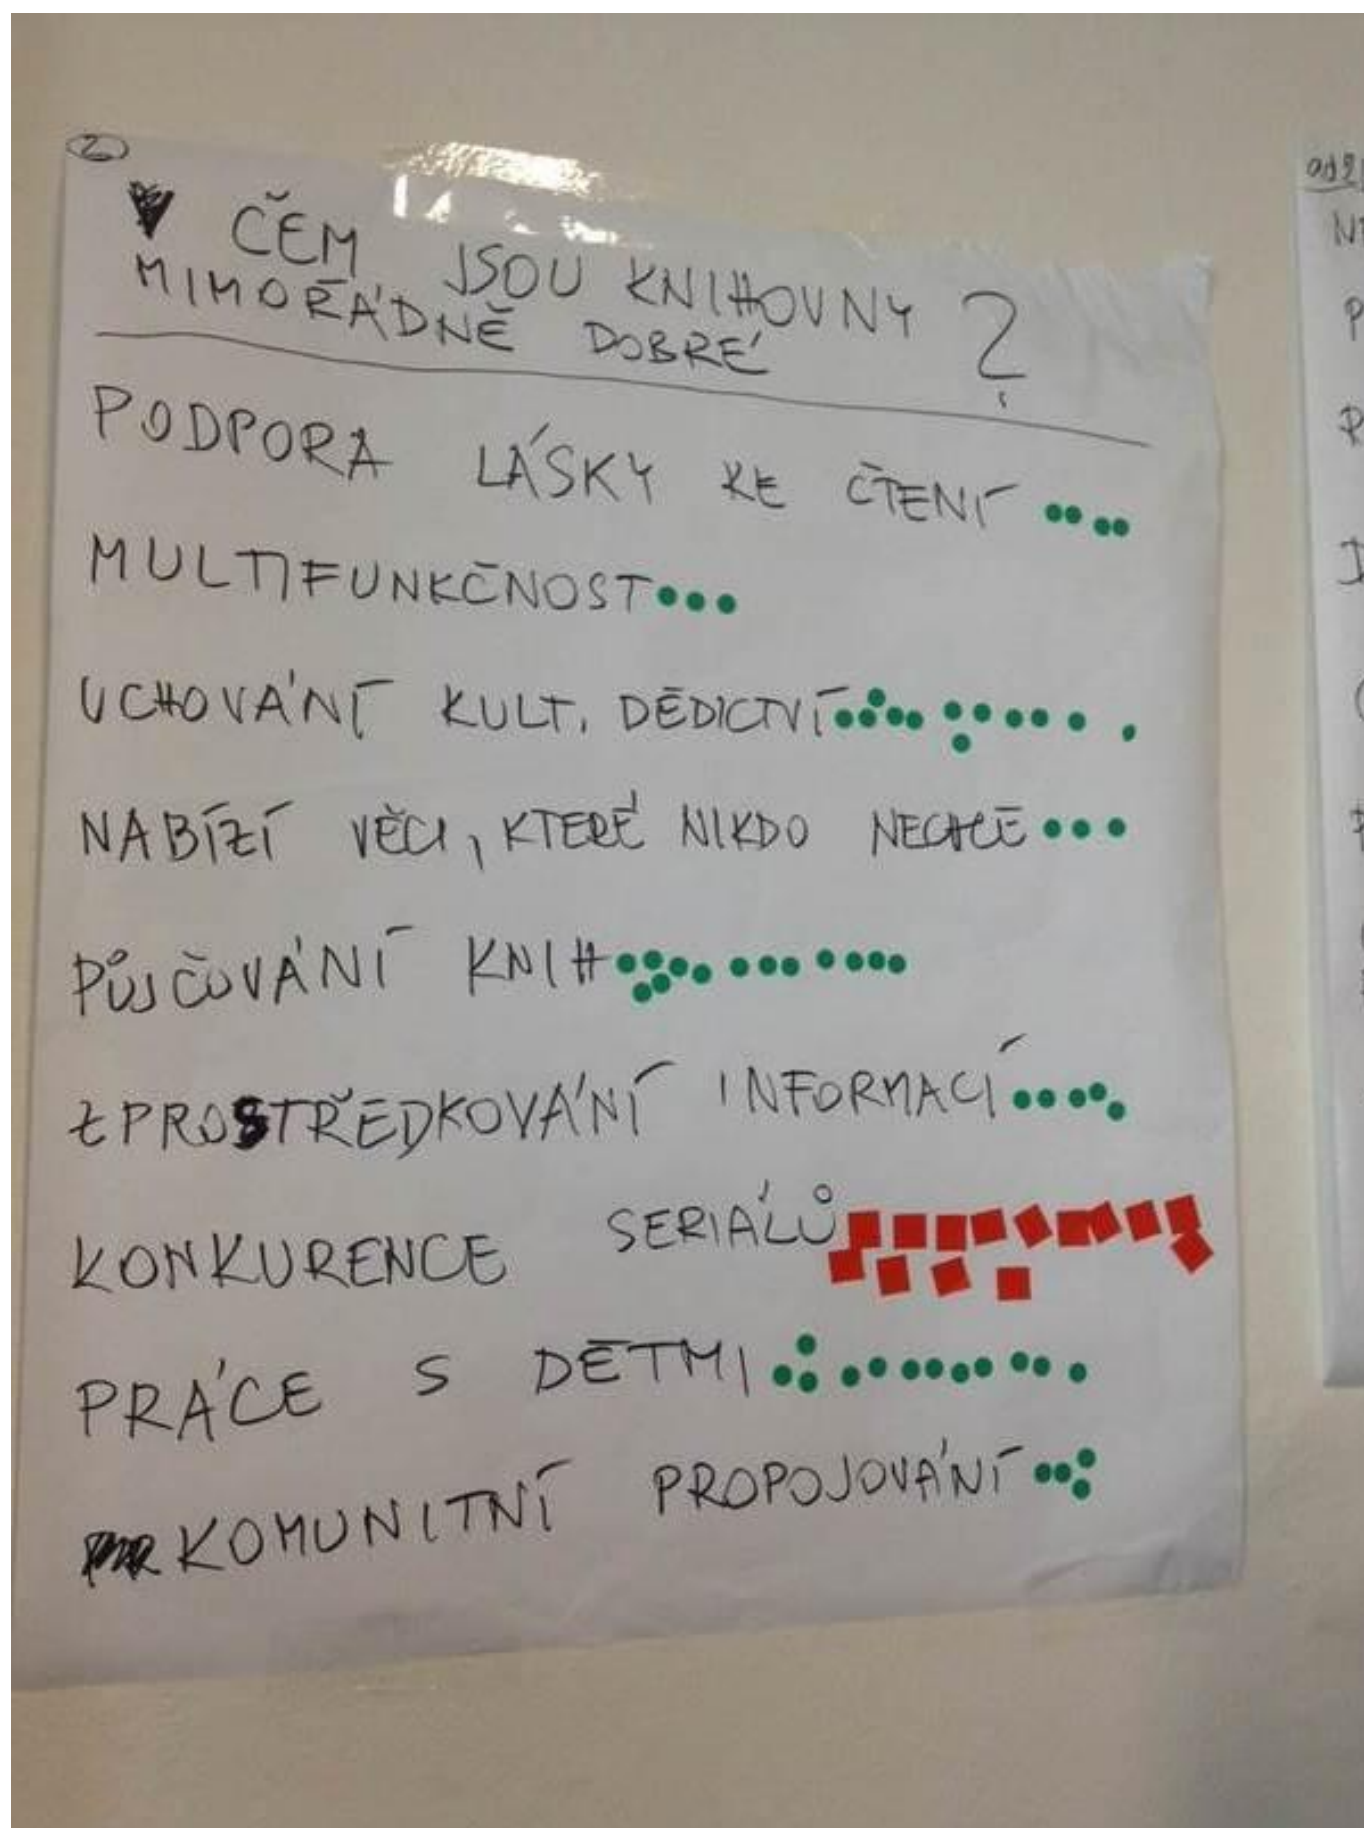 2
V ČEM JSOU KNIHOVNY
MIMOŘÁDNĚ DOBRÉ ?
PODPORA LÁSKY KE ČTENÍ
MULTIFUNKČNOST
UCHOVÁNÍ KULT. DĚDICTVÍ
NABÍZÍ VĚCI, KTERÉ NIKDO NECHCE
PŮJČOVÁNÍ KNIH
ZPROSTŘEDKOVÁNÍ INFORMACÍ
KONKURENCE SERIÁLŮ
PRÁCE S DĚTMI
KOMUNITNÍ PROPOJOVÁNÍ